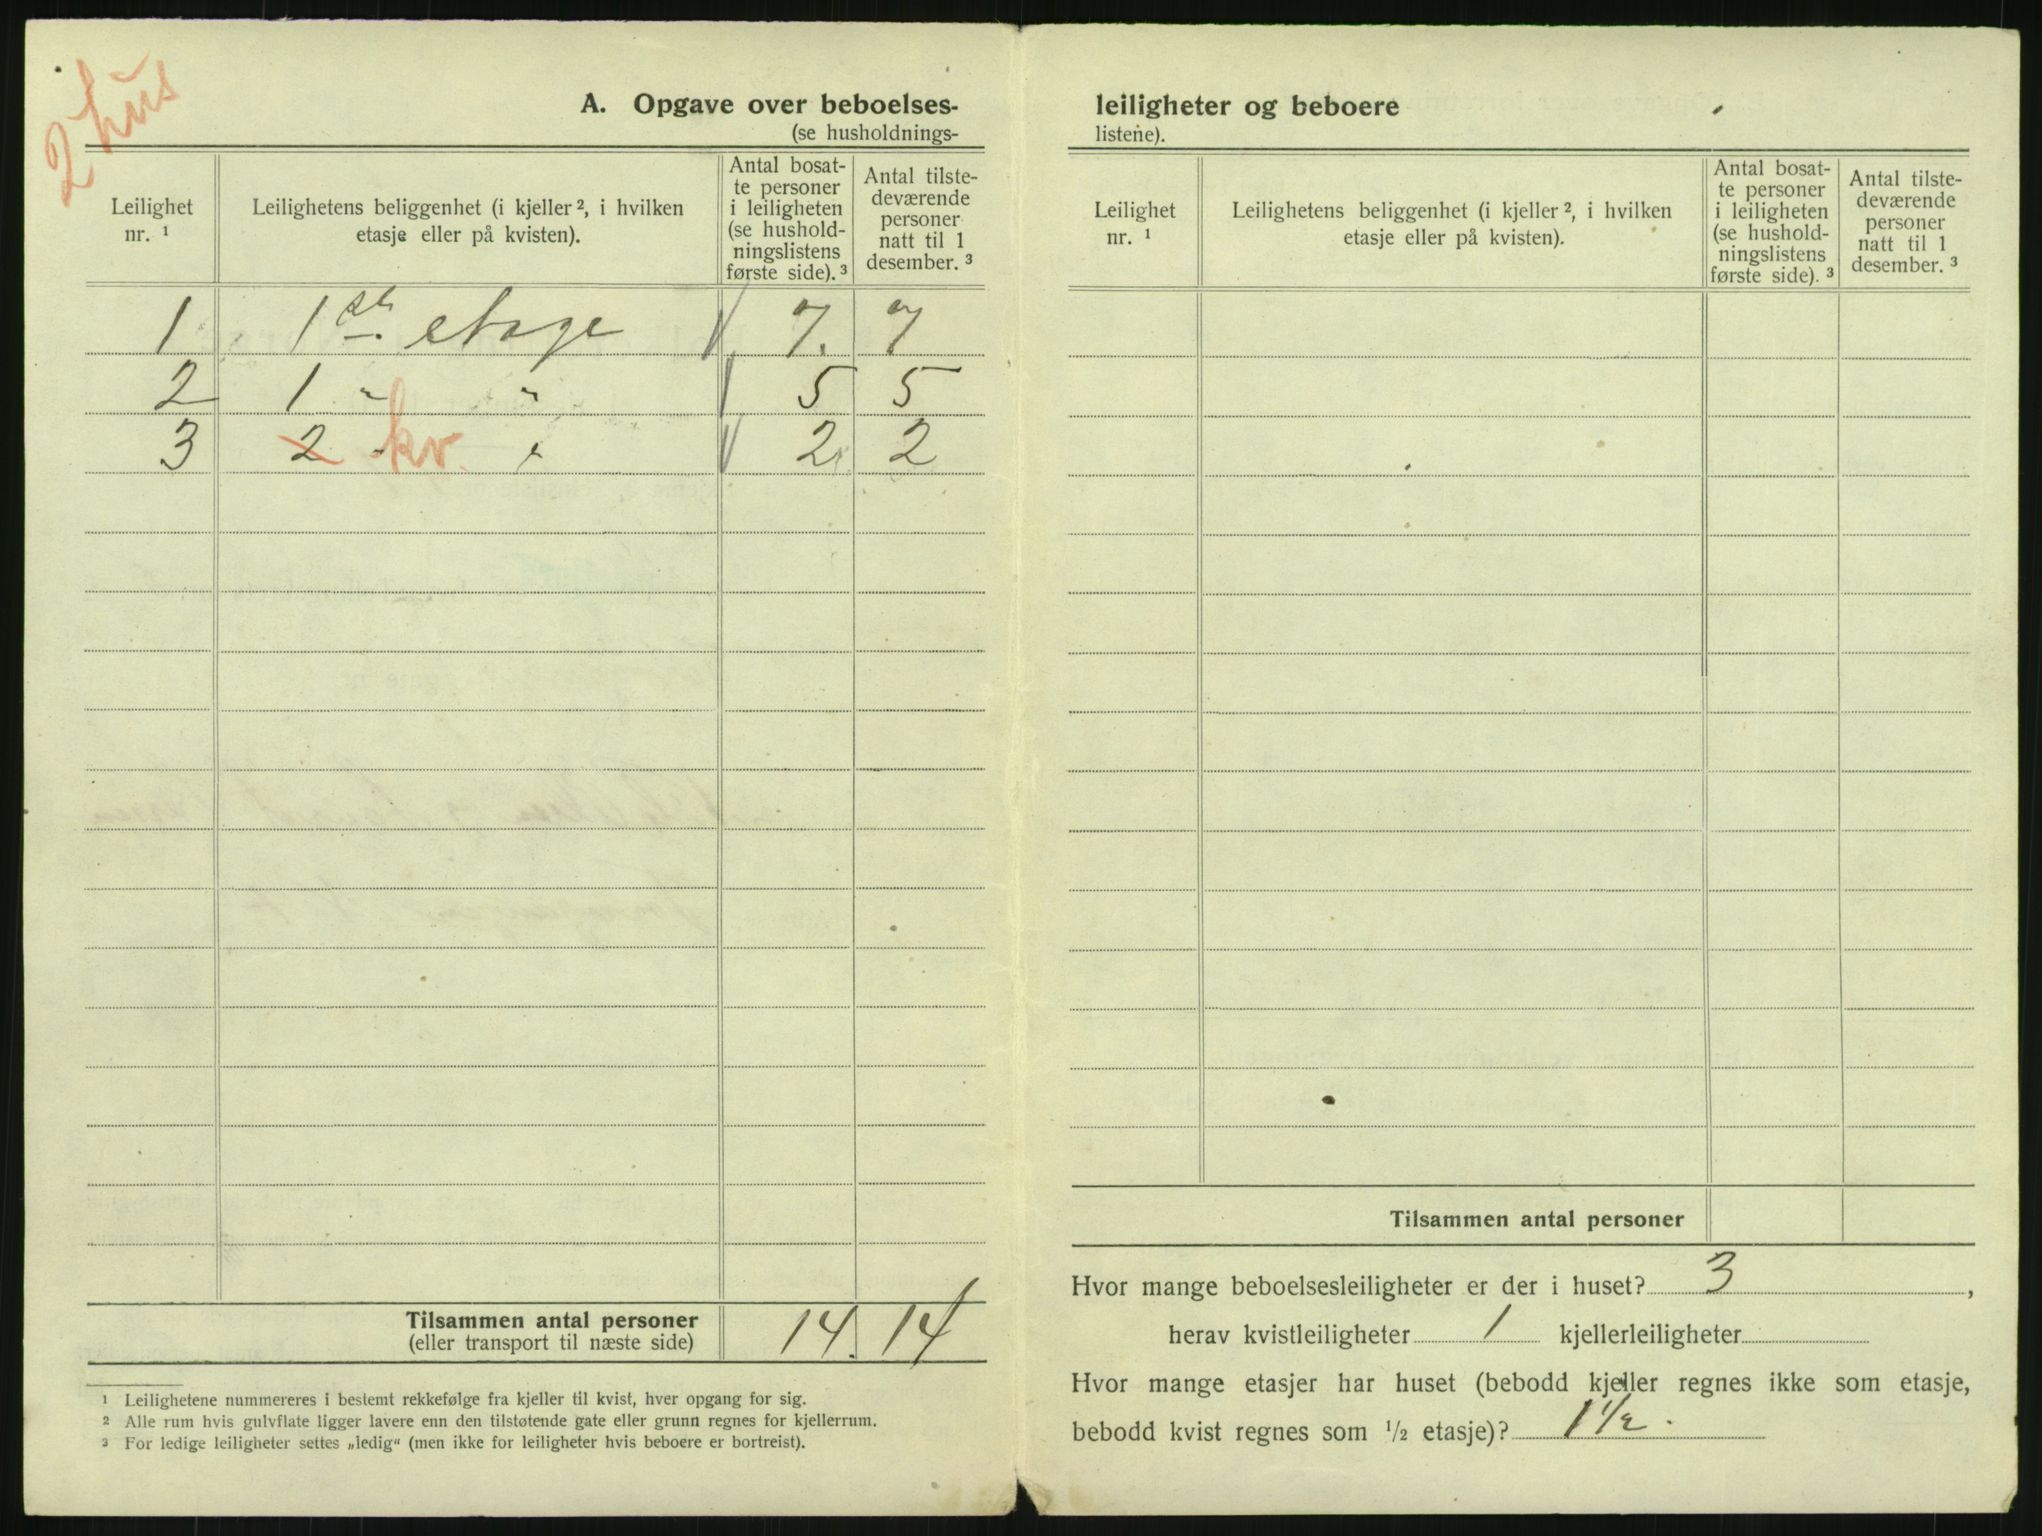 2 hus
A. Opgave over beboelses-
(se husholdnings-
Leilighet nr. ¹
Leilighetens beliggenhet (i kjeller ², i hvilken etasje eller på kvisten).
Antal bosat-
te personer
i leiligheten
(se hushold-
ningslistens
første side). ³
Antal tilste-
deværende
personer
natt til 1
desember. ³
1 1ste etage 7. 7
2 1 " " 5 5
3 2 " kv. " 2 2
Tilsammen antal personer
(eller transport til næste side)
14. 14
¹ Leilighetene nummereres i bestemt rekkefølge fra kjeller til kvist, hver opgang for sig.
² Alle rum hvis gulvflate ligger lavere enn den tilstøtende gate eller grunn regnes for kjellerrum.
³ For ledige leiligheter settes „ledig“ (men ikke for leiligheter hvis beboere er bortreist).
leiligheter og beboere
listene).
Leilighet nr. ¹
Leilighetens beliggenhet (i kjeller ², i hvilken etasje eller på kvisten).
Antal bosat-
te personer
i leiligheten
(se hushold-
ningslistens
første side). ³
Antal tilste-
deværende
personer
natt til 1
desember. ³
Tilsammen antal personer
Hvor mange beboelsesleiligheter er der i huset? 3 ,
herav kvistleiligheter 1 kjellerleiligheter
Hvor mange etasjer har huset (bebodd kjeller regnes ikke som etasje,
bebodd kvist regnes som ½ etasje)? 1½.